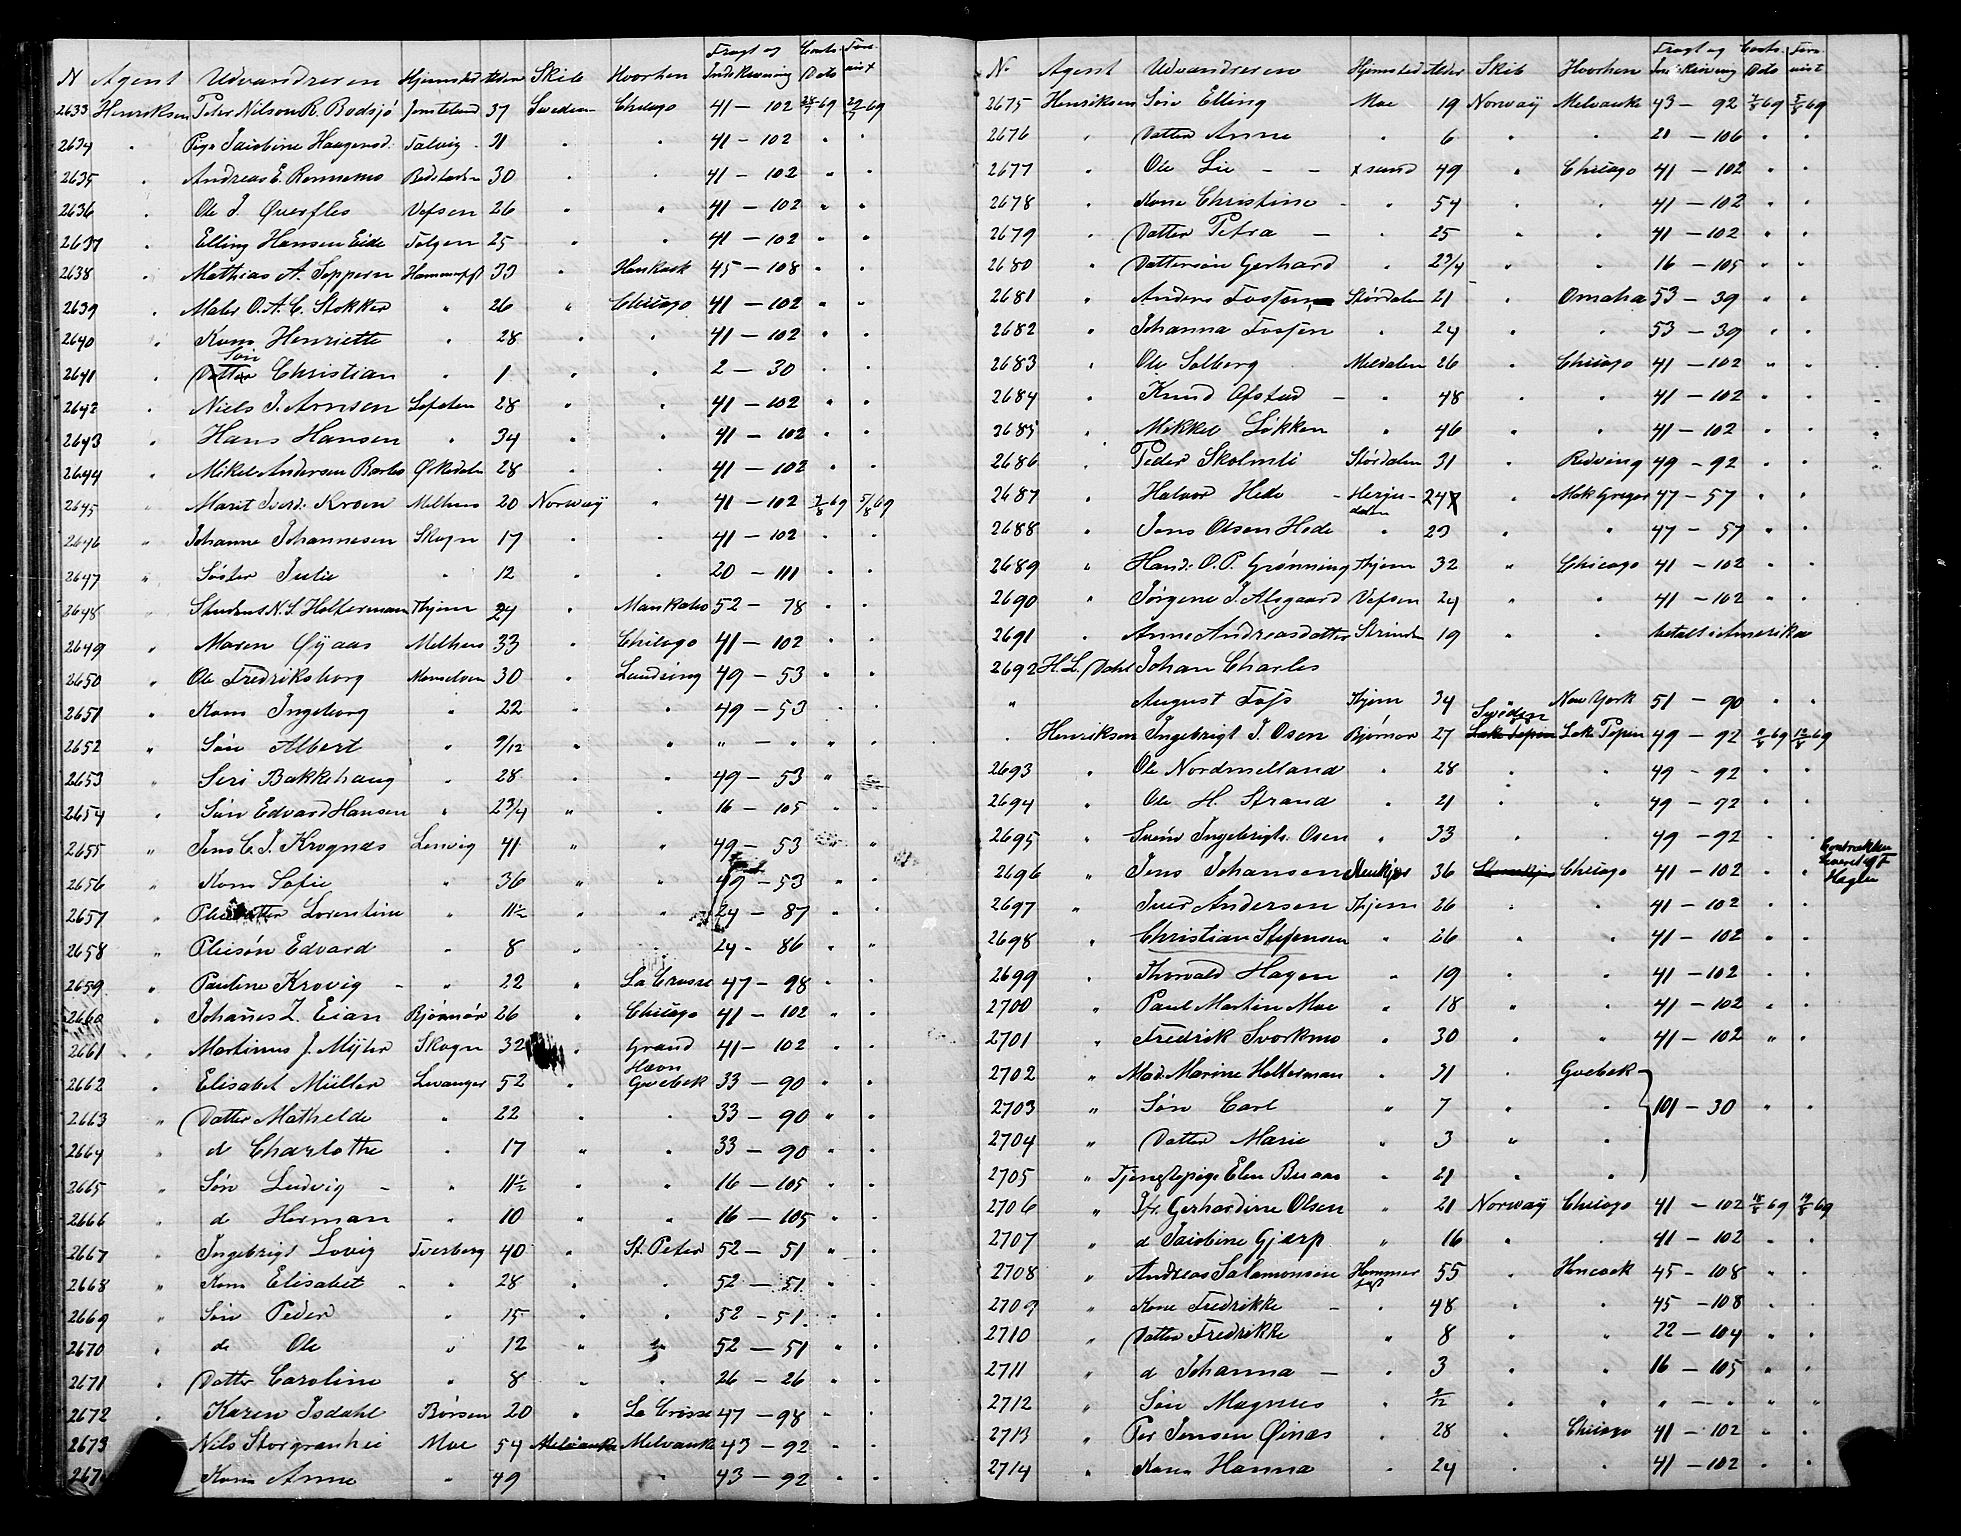 N Agent Udvandreren Hjemsted Alder Skib Hvorhen Fragt og Indskrivning Conts. Dato
2633 Henriksen Peter Nilson R. Bodsjö Jemteland 37 Sweden Chicago 41 - 102 69 69
2634 " Pige Jacobine Haagensd. Talvig 31 " " 41 - 102 " "
2635 " Andreas E. Rennemo 30 " " 41 - 102 " "
2636 " Ole J. Øverfles Vefsen 26 " " 41 - 102 " "
2637 " Elling Hansen Eide Tolgen 25 " " 41 - 102 " "
2638 " Mathias A. Seppern Hammerfst 33 " Hankock 45 - 108 " "
2639 " Maler O. A. C. Stokker " 26 " Chicago 41 - 102 " "
2640 " Kone Henriette " 28 " " 41 - 102 " "
2641 " Søn Christian " 1 " " 2 - 30 " "
2642 " Niels J. Arnsen Lofoten 28 " " 41 - 102 " "
2643 " Hans Hansen " 34 " " 41 - 102 " "
2644 " Mikel Andersen Ørkedalen 28 " " 41 - 102 " "
2645 " Marit Iversd. Kroen Melhus 20 Norway " 41 - 102 3/8 69 5/8 69
2646 " Johanne Johannesen Skogn 17 " " 41 - 102 " "
2647 " Søster Julie " 12 " " 20 - 111 " "
2648 " Student N. S. Holterman Thjem 24 " Mankato 52 - 78 " "
2649 " Maren Øyaas Melhus 33 " Chicago 41 - 102 " "
2650 " Ole Fredriksborg Maalselven 30 " Landsing 49 - 53 " "
2651 " Kone Ingeborg " 22 " " 49 - 53 " "
2652 " Søn Albert " 9/12 " " " - " " "
2653 " Seri Bakkehaug " 28 " " 49 - 53 " "
2654 " Søn Edvard Hansen " 2 3/4 " " 16 - 105 " "
2655 " Jens C. J. Krognæs Lenvig 41 " " 49 - 53 " "
2656 " Kone Sofie " 36 " " 49 - 53 " "
2657 " Pleiedatter Lorentine " 11½ " " 24 - 87 " "
2658 " Pleiesøn Edvard " 8 " " 24 - 86 " "
2659 " Pauline Krovig " 22 " La Crosse 47 - 98 " "
2660 " Johanes Z. Eian Bjørnør 26 " Chicago 41 - 102 " "
2661 " Martinus J. Myhr Skogn 32 " Grand Havn 41 - 102 " "
2662 " Elisabet Müller Levanger 52 " Qvebek 33 - 90 " "
2663 " Datter Mathilde " 22 " " 33 - 90 " "
2664 " d Charlothe " 17 " " 33 - 90 " "
2665 " Søn Ludvig " 11½ " " 16 - 105 " "
2666 " d Herman " 10 " " 16 - 105 " "
2667 " Ingebrigt Lovig Tverberg 40 " St Peter 52 - 51 " "
2668 " Kone Elisabet " 28 " " 52 - 51 " "
2669 " Søn Peder " 15 " " 52 - 51 " "
2670 " d Ole " 12 " " 52 - 51 " "
2671 " Datter Caroline " 8 " " 26 - 26 " "
2672 " Karen Isdahl Børsen 20 " La Crosse 47 - 98 " "
2673 Nils Storgranhei Moe 54 Melvauke Melvauke 43 - 92 " "
Kone Anne " 49 " 43 - 92 " "
N. Agent Udvandreren Hjemsted Alder Skib Hvorhen Fragt og Indskrivning Conts. Dato
2675 Henriksen Søn Elling Moe 19 Norway Melvauke 43 - 92 69 69
2676 " Datter Anne " 6 " " 21 - 106 " "
2677 " Ole Lie xsund 49 " Chicago 41 - 102 " "
2678 " Kone Christine " 54 " " 41 - 102 " "
2679 " Datter Petra " 25 " " 41 - 102 " "
2680 " Dattersøn Gerhard " 2 3/4 " " 16 - 105 " "
2681 " Anders Størdalen 21 " Omaha 53 - 39 " "
2682 " Johanna " 24 " " 53 - 39 " "
2683 " Ole Solberg Meldalen 26 " Chicago 41 - 102 " "
2684 " Knud Øfstad " 48 " " 41 - 102 " "
2685 " Mikkel Løkken " 46 " " 41 - 102 " "
2686 " Peder Skolmli Størdalen 31 " Redving 49 - 92 " "
2687 " Halvor Hede Herjedalen 24 " Mak Gregor 47 - 57 " "
2688 " Jens Olsen Hede " 23 " " 47 - 57 " "
2689 " Hand. O. P. Grønning Thjem 32 " Chicago 41 - 102 " "
2690 " Jørgene J. Alsgaard Vefsen 24 " " 41 - 102 " "
2691 " Anne Andreasdatter Strinden 19 " " betalt i Amerika
2692 H. L. Dahl Johan Charles
" August Foss Thjem 34 Sweden New York 51 - 90 " "
Henriksen Ingebrigt J. Osen Bjørnør 27 Lake Pepin Lake Pepin 49 - 92 69 69
2693 " Ole Nordmelland " 28 " " 49 - 92 " "
2694 " Ole H. Strand " 21 " " 49 - 92 " "
2695 " Svend Ingebrigts. Osen " 33 " " 49 - 92 " "
2696 " Jens Johansen Stenkjær 36 Stenkjær Chicago 41 - 102 " " Contrakten leveret af Hagen
2697 " Iver Andersen Thjem 26 " " 41 - 102 " "
2698 " Christian Steffensen " 26 " " 41 - 102 " "
2699 " Thorvald Hagen " 19 " " 41 - 102 " "
2700 " Paul Martin Moe " 18 " " 41 - 102 " "
2701 " Fredrik Svorkmo " 30 " " 41 - 102 " "
2702 " Mad. Marine Holterman " 31 " Qvebek
2703 " Søn Carl " 7 " " 101 - 30 " "
2704 " Datter Marie " 3 " "
2705 " Tjenestepige Elen Busaas " 21 " "
2706 " Jfr. Gerhardine Olsen " 21 Norway Chicago 41 - 102 69 69
2707 " d Jacobine Gjærp " 16 " " 41 - 102 " "
2708 " Andreas Salamonsen Hammerfest 55 " Hancock 45 - 108 " "
2709 " Kone Fredrikke " 48 " " 45 - 108 " "
2710 " Datter Fredrikke " 8 " " 22 - 104 " "
2711 " d Johanna " 3 " " 16 - 105 " "
2712 " Søn Magnus " " " " - " " "
2713 " Per Jensen Øinæs " 28 " Chicago 41 - 102 " "
2714 " Kone Hanna " 24 " " 41 - 102 " "